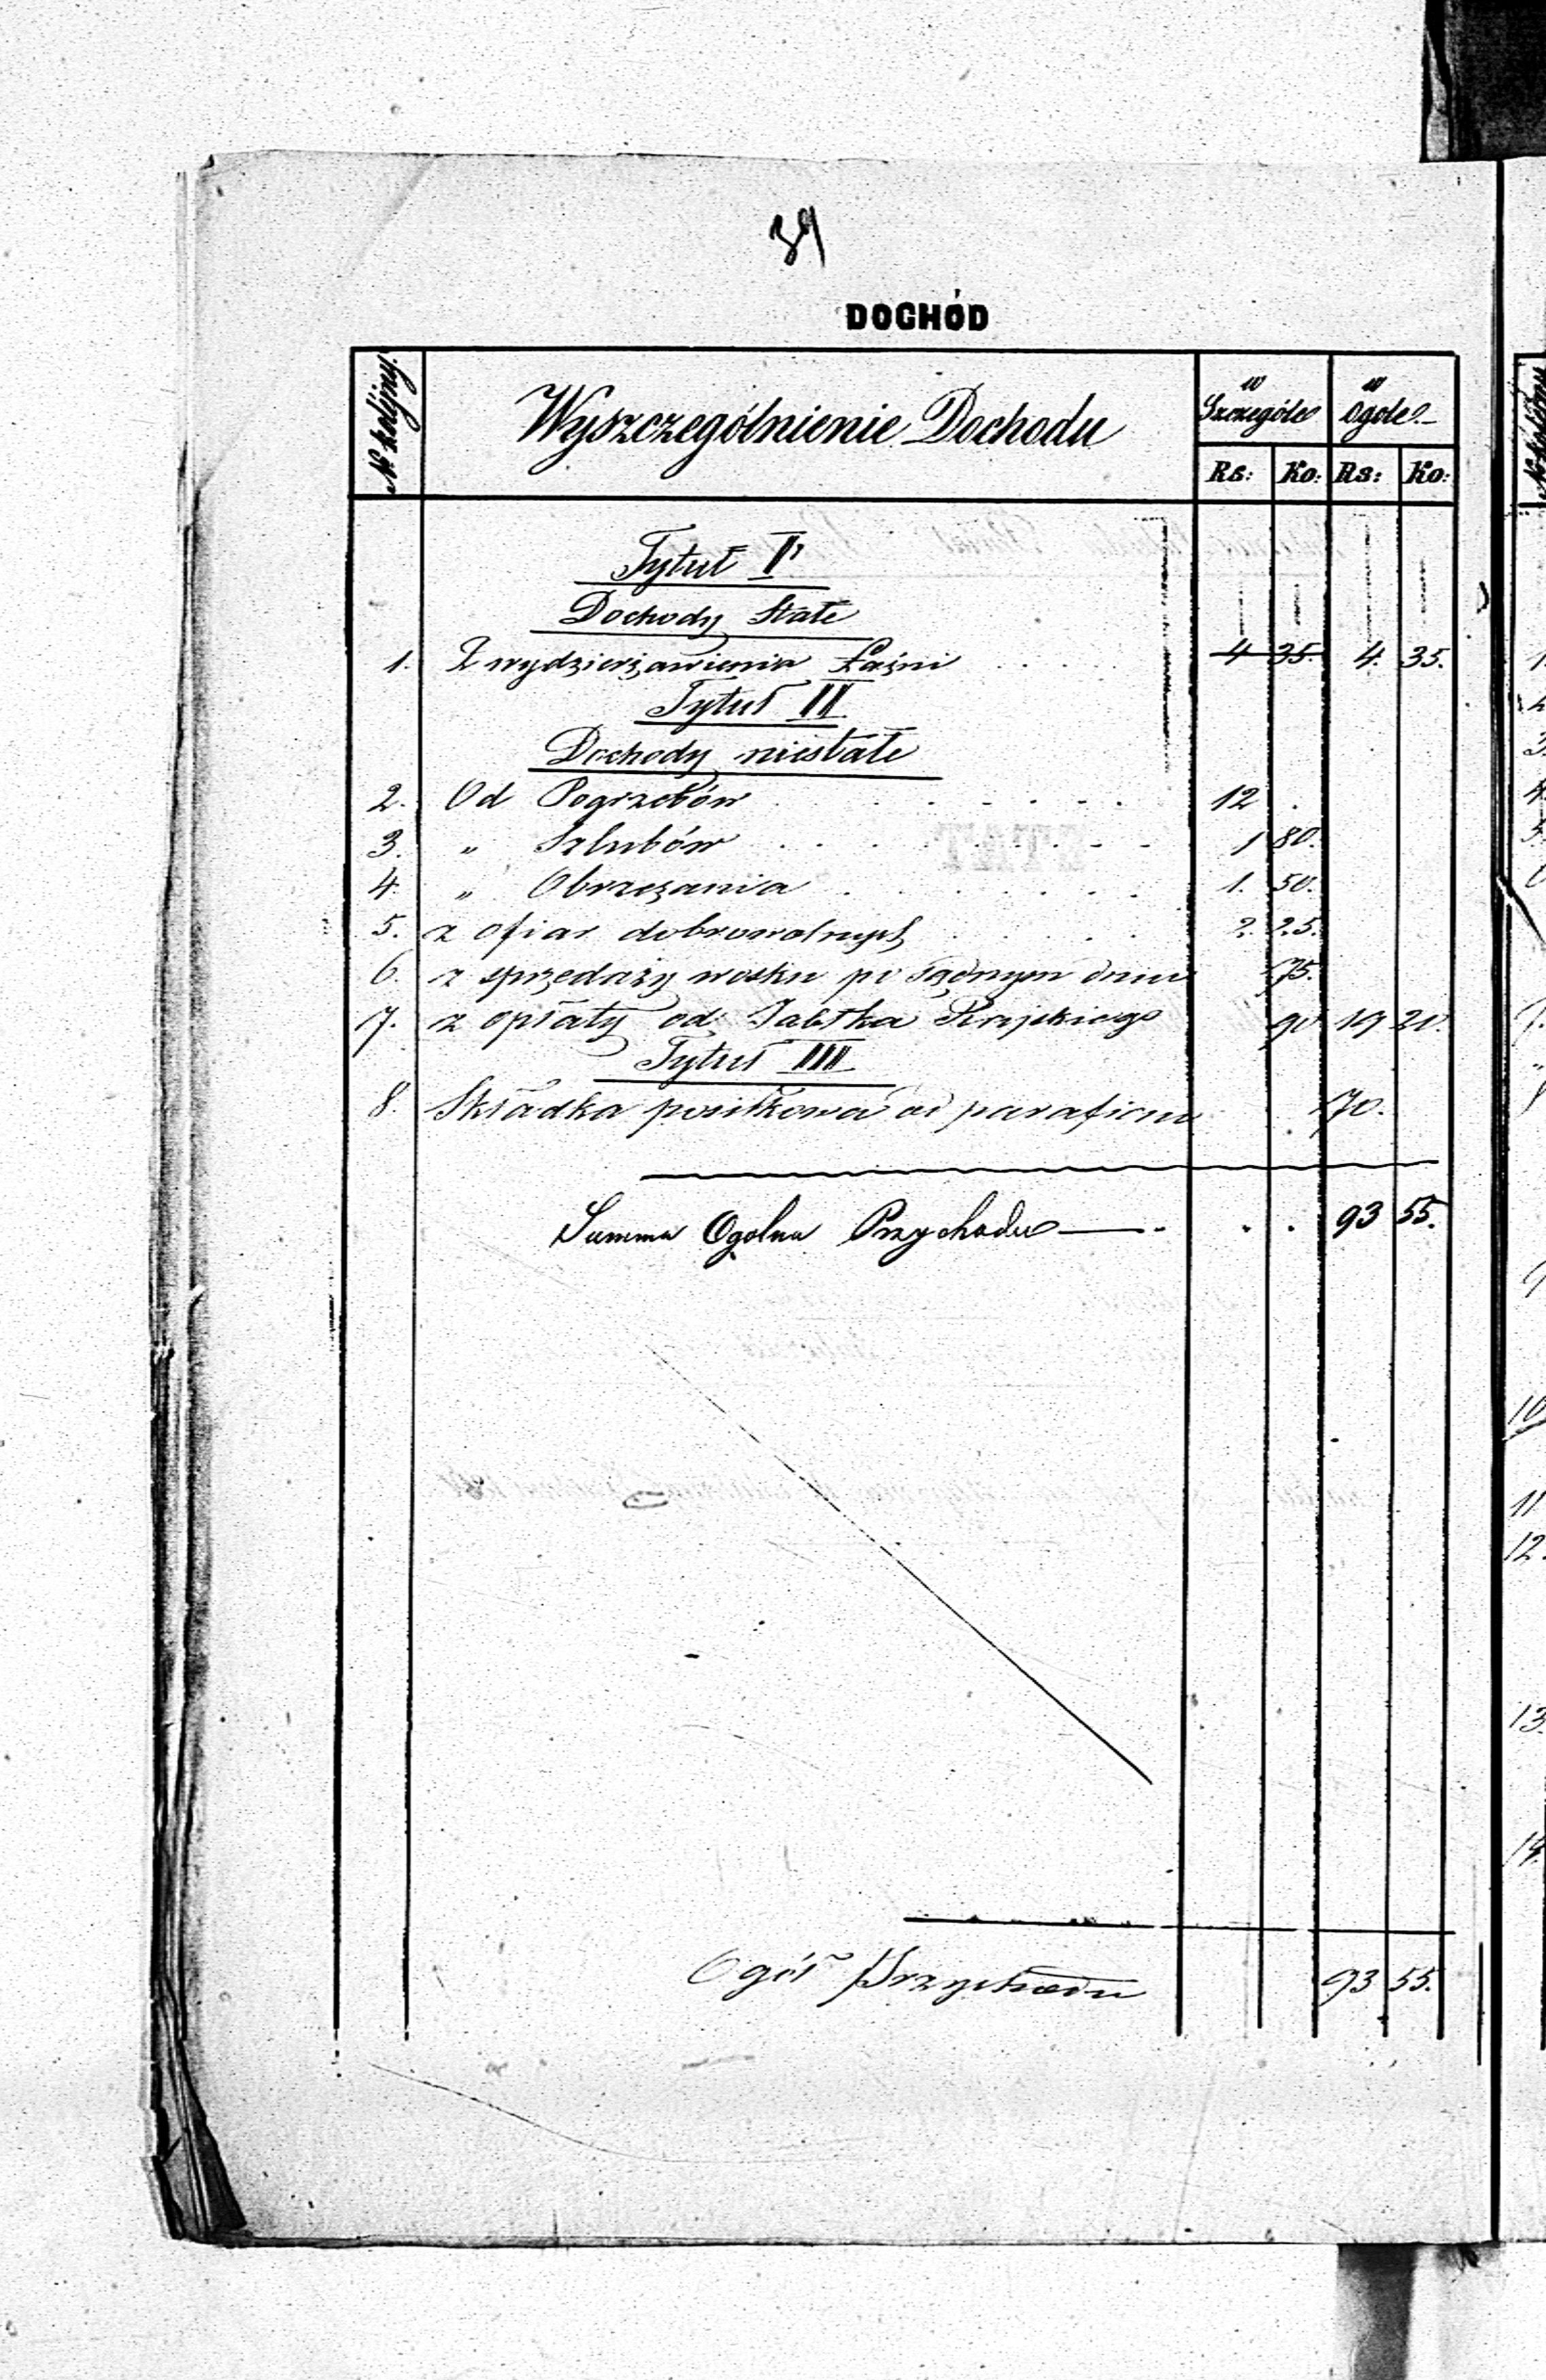 39
DOCHÓD
№ kolejny. Wyszczególnienie Dochodu w Szczególe w Ogole
Rs: Ko: Rs: Ko:
Tytuł I
Dochody Stałe
1. Z wydzierżawienia Łaźni 4 35. 4. 35.
Tytuł II
Dochody niestałe
2. Od Pogrzebów 12 .
3. " Szlubów 1 80.
4. " Obrzezania 1. 50.
5. z ofiar dobrowolnych 2. 25.
6. z sprzedaży wosku po sądnym dniu 75.
7. z opłaty od Jabłka Rajskiego 90 19 20.
Tytuł III
8. Składka posiłkowa od parafian 70.
Summa Ogolna Przychodu . . 93 55.
Ogół Przychodu 93 55.